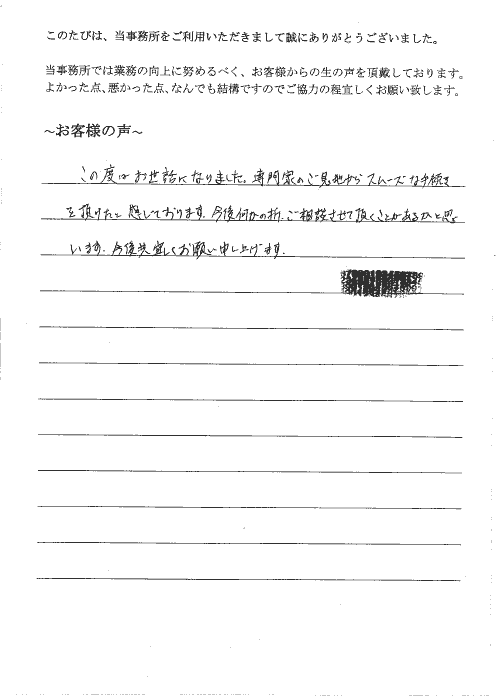 このたびは、当事務所をご利用いただきまして誠にありがとうございました。
当事務所では業務の向上に努めるべく、お客様からの生の声を頂戴しております。
よかった点、悪かった点、なんでも結構ですのでご協力の程宜しくお願い致します。
～お客様の声～
この度はお世話になりました。専門家のご見地からスムーズな手続き
を頂けたと感じております。今後何かの折、ご相談させて頂くことがあるかと思
います。今後共宜しくお願い申し上げます。